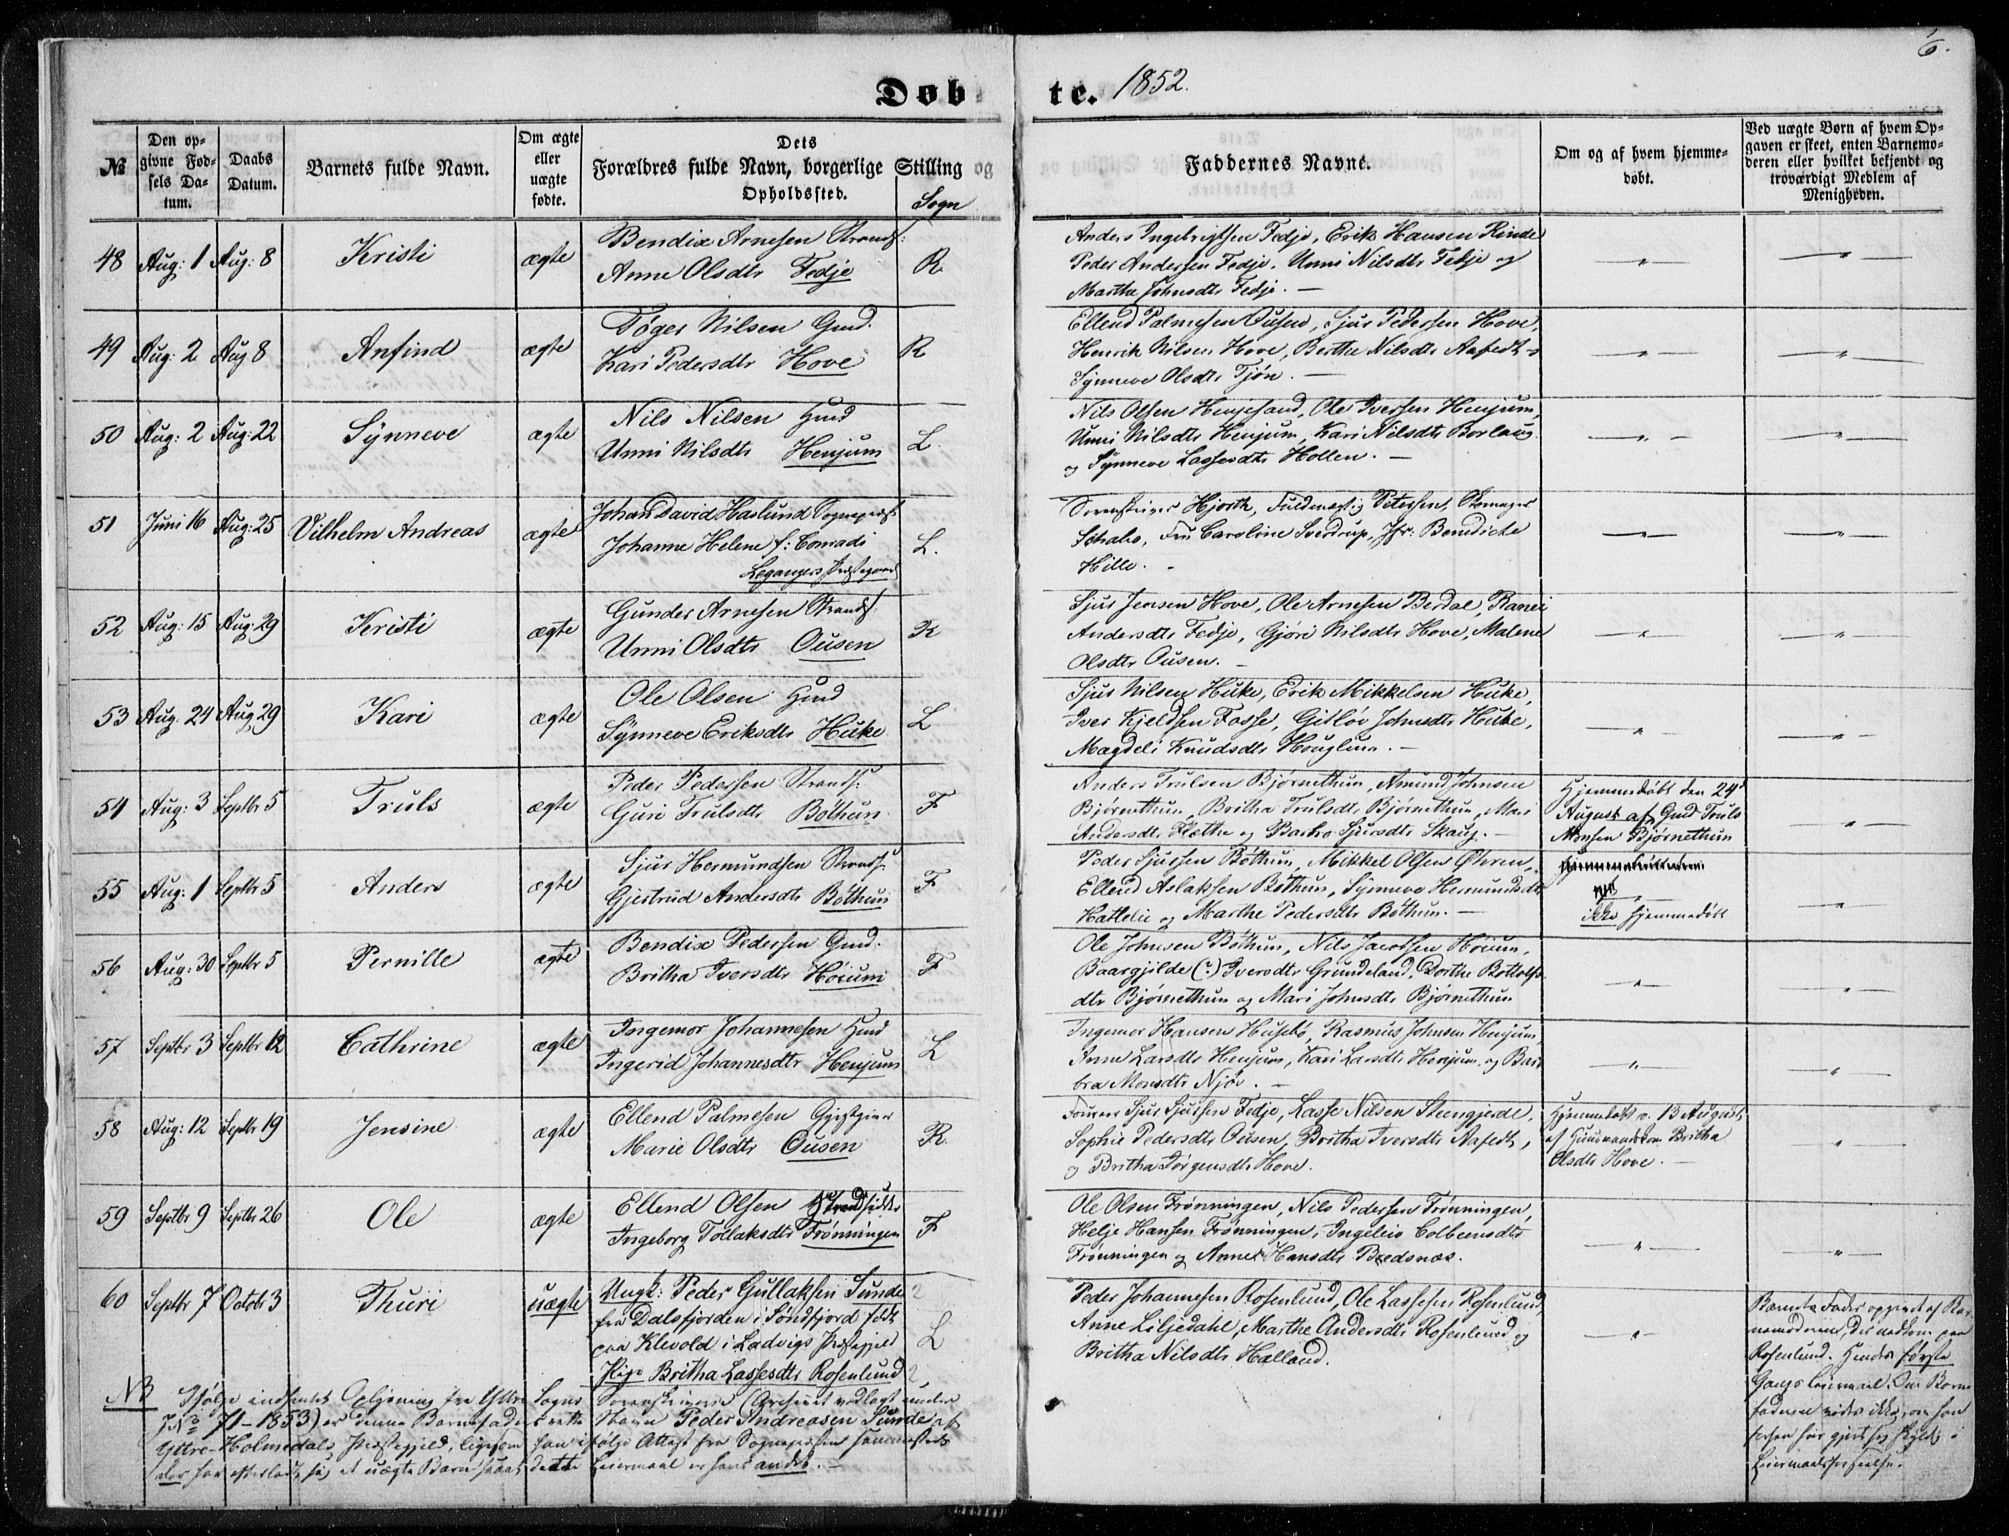 6.
Døbte. 1852.
№
Den opgivne Fødsels Datum.
Daabs Datum.
Barnets fulde Navn.
Om ægte eller uægte fødte.
Dets Forældres fulde Navn, borgerlige Stilling og Opholdssted.
Sogn
Faddernes Navne.
Om og af hvem hjemmedøbt.
Ved uægte Børn af hvem Opgaven er skeet, enten Barnemoderen eller hvilket bekjendt og troværdigt Medlem af Menigheden.
48 Aug: 1 Aug: 8 Kristi ægte
Bendix Arnesen Strands:
Anne Olsdtr Fedje R.
Anders Ingebrigtsen Fedje, Erik Hansen Rinde
Peder Andersen Fedje, Unni Nilsdtr Fedje og
Marthe Johnsdtr Fedje. —
49 Aug: 2 Aug 8 Anfind ægte
Tøger Nilsen Gmd.
Kari Pedersdtr Hove R
Ellend Palmesen Ousen, Sjur Pedersen Hove,
Henrik Nilsen Hove, Berthe Nilsdtr Aafedt
Synneve Olsdtr Tjøn. —
50 Aug: 2 Aug: 22 Synneve ægte
Nils Nilsen Hmd
Unni Nilsdtr Henjum L.
Nils Olsen Henjesand, Ole Iversen Henjum,
Unni Nilsdtr Henjum, Kari Nilsdtr Borlaug
og Synneve Lassesdtr Hollen. —
51 Juni 16 Aug: 25 Vilhelm Andreas ægte
Johan David Haslund Sognepræst
Johanne Helene f: Conradi
Leganger Præstegaard L.
Sorenskriver Hjorth, Fuldmægtig Petersen,
Fru Caroline Sverdrup, Jfr: Benedicte
Hille. -
52 Aug: 15 Aug: 29 Kristi ægte
Gunder Arnesen Strands:
Unni Olsdtr Ousen R
Sjur Jensen Hove, Ole Arnesen Berdal, Ranei
Andersdtr Fedje, Gjøri Nilsdtr Hove, Malene
Olsdtr Ousen. —
53 Aug. 24 Aug 29 Kari ægte
Ole Olsen Hmd
Synneve Eriksdtr Huke L
Sjur Nilsen Huke, Erik Mikkelsen Huke,
Iver Kjeldsen Fosse, Gitløv Johnsdtr Huke,
Magdeli Knudsdtr Houglum. —
54 Aug: 3 Septbr 5 Truls ægte
Peder Pedersen Strands:
Guri Trulsdtr Bøthun F
Anders Trulsen Bjørnethun, Amund Johnsen
Bjørnethun, Britha Trulsdt, Bjørnethun, Mari
Andersdtr Flæthe og Barbro Sjursdtr Skaug. —
Hjemmedøbt den 24d
August af Gmd Truls
Monsen Bjørnethun
55 Aug: 1 Septbr 5 Anders ægte
Sjur Hermundsen Strands:
Gjertrud Andersdtr Bøthun F
Peder Sjursen Bøthun, Mikkel Olsen Øhren,
Ellend Aslaksen Bøthun, Synneve Hermundsdtr
Hattelie og Marthe Pedersdtr Bøthum. —
ikke hjemmedøbt
56 Aug: 30 Septbr 5 Pernille ægte
Bendix Pedersen Gmd.
Britha Iversdtr Høium F
Ole Johnsen Bøthun, Nils Jacobsen Høium,
Baargjilde (?) Iversdtr Grundeland, Dorthe Bottolfs
dtr Bjørnethun og Mari Johnsdtr Bjørnethun
57 Septbr 3 Septbr 12 Cathrine ægte
Ingemor Johannesen Hmd
Ingerid Johannesdtr Henjum L
Ingemor Hansen Husebø, Rasmus Johnsen Henjum,
Anne Larsdtr Henjum, Kari Larsdtr Henjum, og Bar
bra Monsdtr Njøs. —
58 Aug: 12 Septbr 19 Jensine ægte
Ellend Palmesen Gjestgiver
Marie Olsdtr Ousen R.
Sjur Sjursen Fedje, Lasse Nilsen Steengjerde,
Sophie Pedersdtr Ousen, Britha Iversdtr Aafedt,
og Britha Jørgensdtr Hove.
Hjemmedøbt d. 13 August
af Huusmandskone Britha
Olsdtr Hove. —
59 Septbr 9 Septbr 26 Ole ægte
Ellend Olsen Strandsidder
Ingeborg Tollaksdtr Frønningen F
Ole Olsen Frønningen, Nils Pedersen Frønningen,
Helje Hansen Frønningen, Ingeleiv Colbeensdtr
Frønningen og Anne Hansdtr Bredsnæs.
60 Septbr 7 Octobr 3 Thuri uægte
Ungk: Peder Gullaksen Sunde
fra Dalsfjorden i Søndfjord født
paa Klevold i Ladvigs Præstegjeld
Pige Britha Lassesdtr Rosenlund L
Peder Johannesen Rosenlund, Ole Lassesen Rosenlund
Anne Liljedahl, Marthe Andersdtr Rosenlund og
Britha Nilsdtr Hælland.
Barnets Fader opgivet af Bar
nemoderen, der nedkom paa
Rosenlund. Hendes første
Gangs Leiermaal. Om Barne
faderen vides ikke, om han
forhen har gjort sig skyldig i
Leiermaalsforseelse.
NB Ifølge indhentet Oplysning fra Yttre Sogns Sorenskriverie (Brevet vedlagt under
J. No 71 - 1853) er denne Barnefaders rette Navn Peder Andreasen Sunde af
Yttre-Holmedals Præstegjeld, ligesom han ifølge Attest fra Sognepræsten sammesteds
der har efterladt sig et uægte Barn, saaat dette Leiermaal er hans andet. —